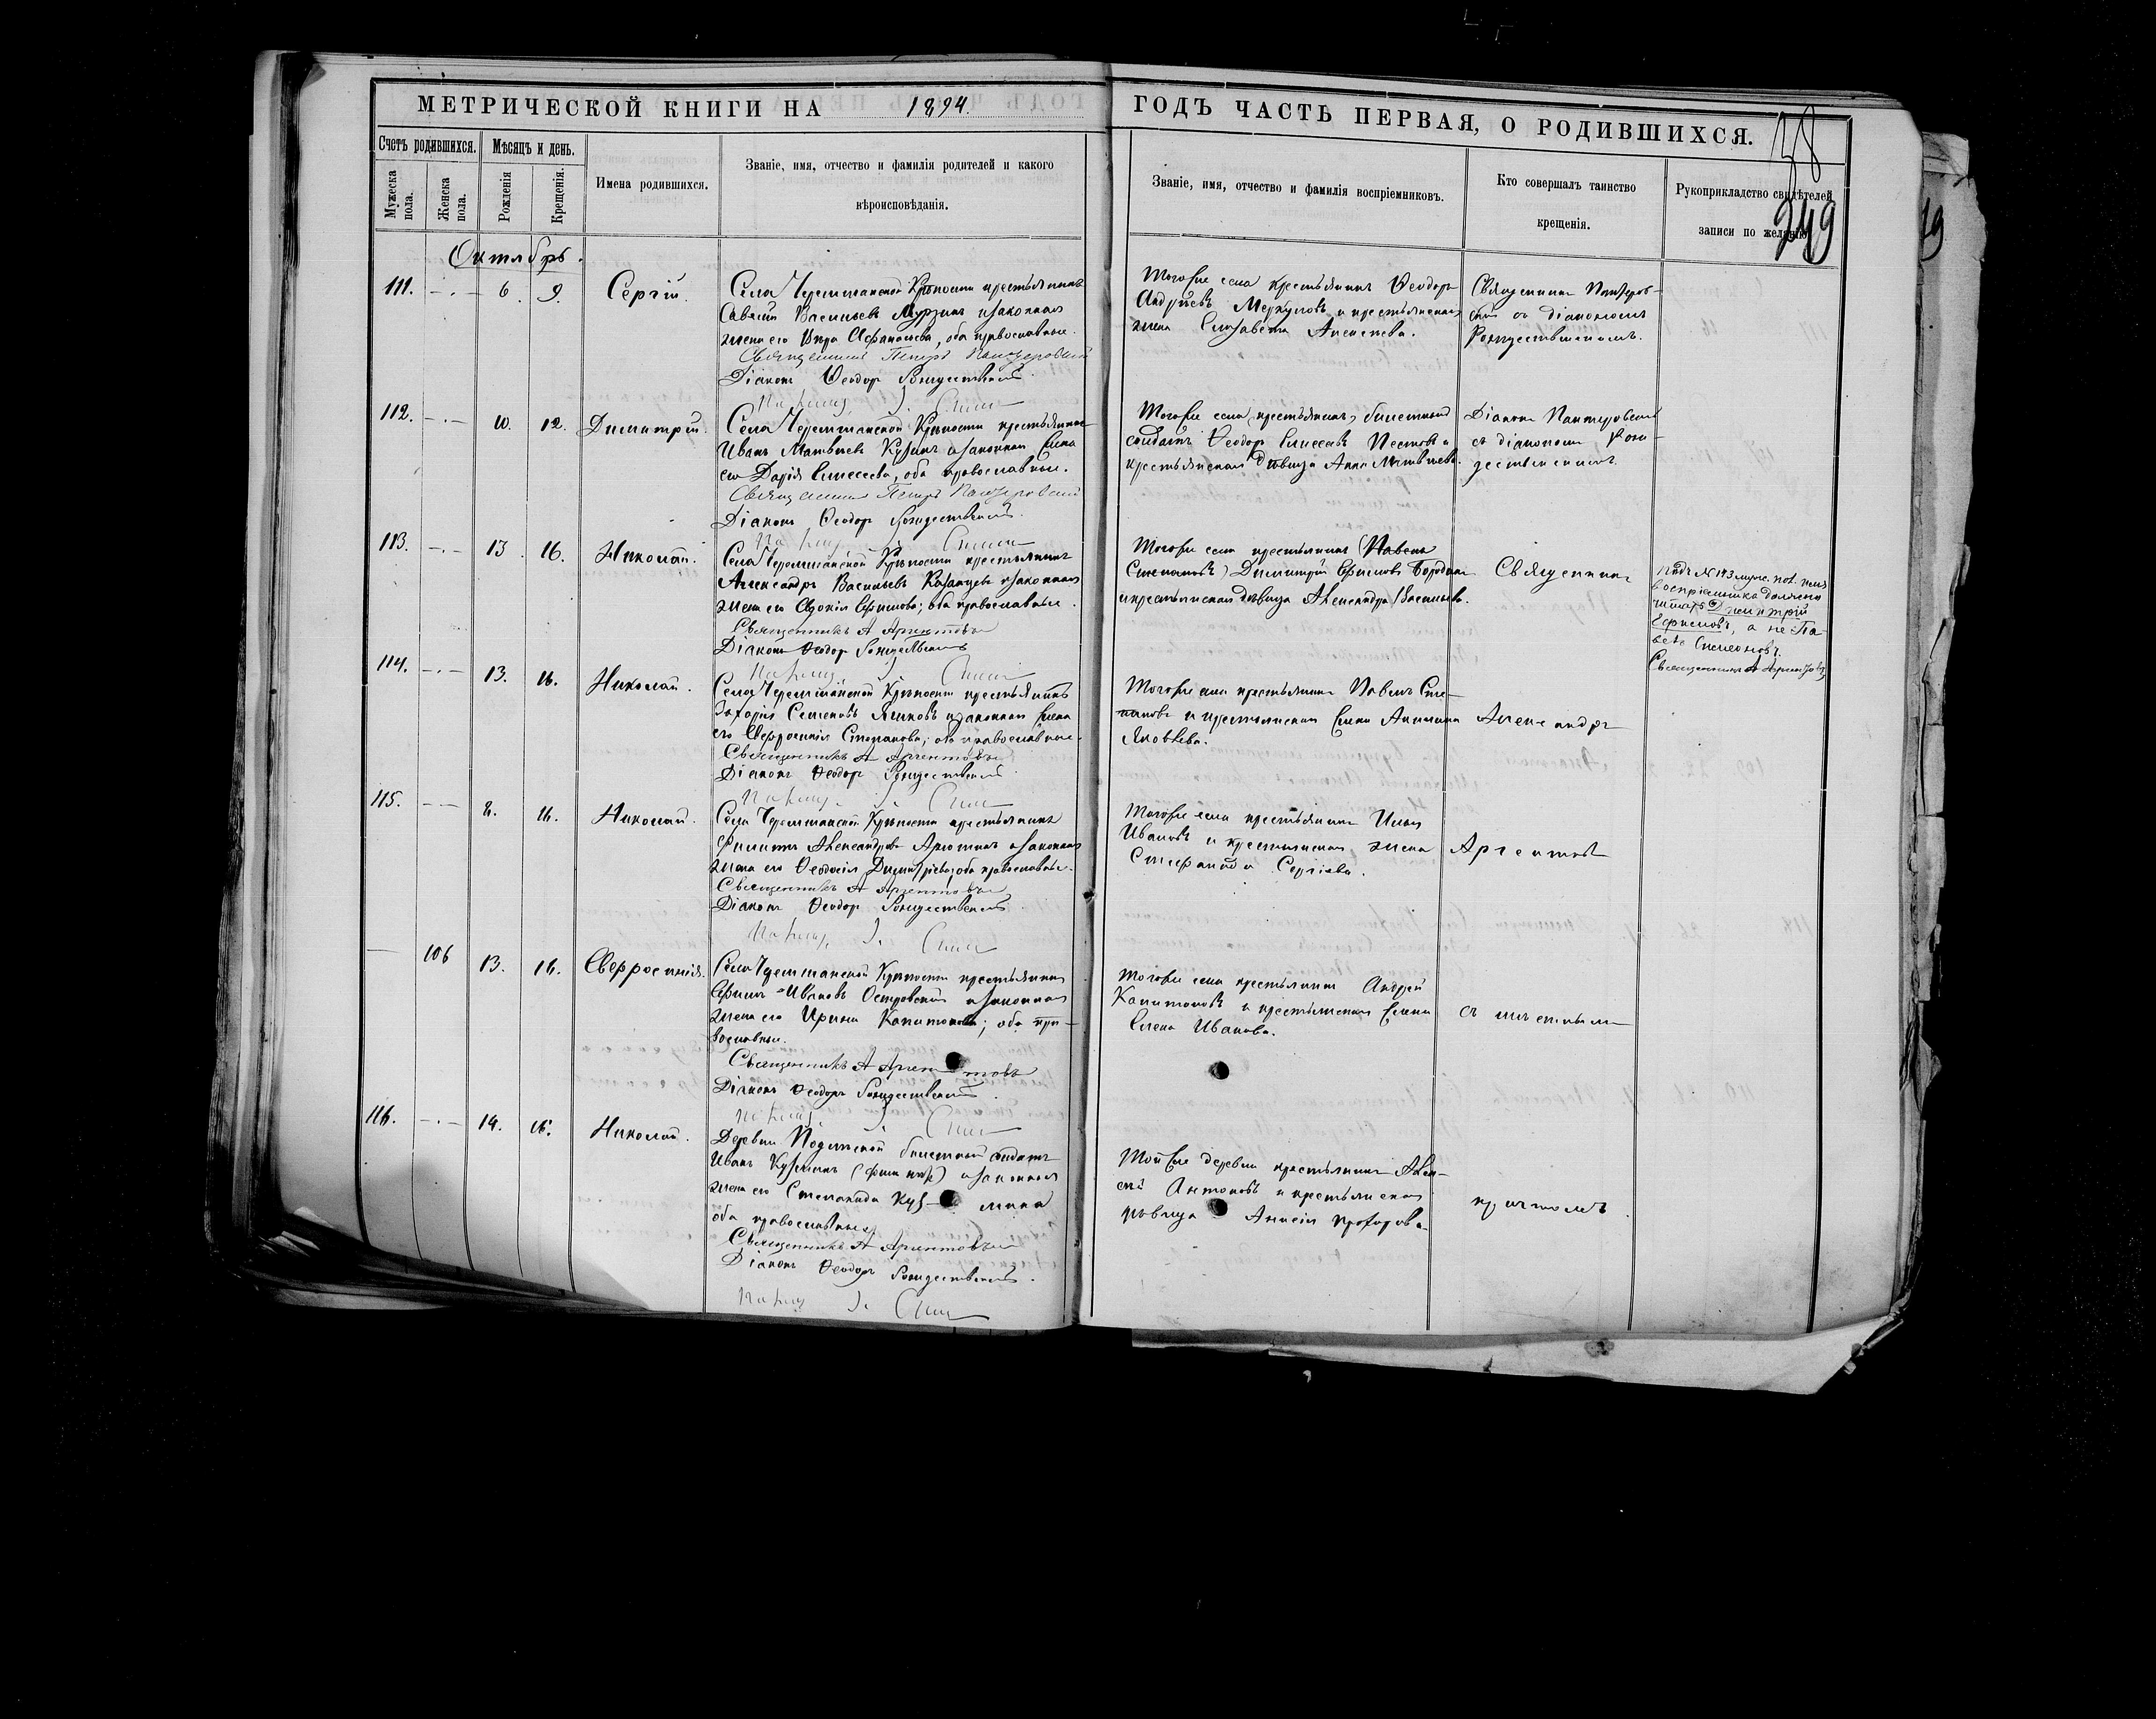 МЕТРИЧЕСКОЙ КНИГИ НА 1894.
ГОДЪ ЧАСТЬ ПЕРВАЯ, О РОДИВШИХСЯ.
38
249
Счетъ родившихся.
Мужеска пола.
Женска пола.
Мѣсяцъ и день.
Рожденія
Крещенія.
Имена родившихся.
Званіе, имя, отчество и фамилія родителей и какого
вѣроисповѣданія.
Званіе, имя, отчество и фамилія воспріемниковъ.
Кто совершалъ таинство
крещенія.
Рукоприкладство свидѣтелей
записи по желанію
Октябрь.
111. 6. 9. Сергій.
Села Черемшанской Крѣпости крестьянинъ
Савелій Васильевъ Мурзинъ и законная
жена его Вѣра Афанасьева, оба православные.
Священникъ Петръ
Діаконъ Ѳеодоръ Рождественскій
Тогоже села крестьянинъ Ѳеодоръ
Андреевъ Меркуловъ и крестьянская
жена Елизавета Алексеева.
Священникъ
съ діакономъ
Рождественскимъ.
112. 10. 12. Димитрій.
Села Черемшанской Крѣпости крестьянинъ
Иванъ Матвѣевъ Кузинъ и законная жена
его Дарія Елисеева, оба православные.
Священникъ Петръ
Діаконъ Ѳеодоръ Рождественскій.
Тогоже села крестьянинъ, билетный
солдатъ Ѳеодоръ Елисеевъ и
крестьянская дѣвица Анна Матвѣева.
съ діакономъ Рож-
дественскимъ.
113. 13. 16. Николай.
Села Черемшанской Крѣпости крестьянинъ
Александръ Васильевъ Казанцевъ и законная
жена его Евдокія Ефимова; оба православные.
Священникъ А Аргентовъ
Діаконъ Ѳеодоръ Рождественскій
Тогоже села крестьянинъ (Павелъ
Степановъ) Димитрій Ефимовъ
и крестьянская дѣвица Александра Васильева.
Священникъ
Подъ № 113 муж. пол.
воспріемника должно
читать Димитрій
Ефимовъ, а не Па-
велъ
Священникъ А Аргентовъ
114. 13. 16. Николай.
Села Черемшанской Крѣпости крестьянинъ
Захарія Семеновъ и законная жена
его Евфросинія Степанова; оба православные.
Священникъ А Аргентовъ
Діаконъ Ѳеодоръ Рождественскій
Тогоже села крестьянинъ Павелъ Сте-
пановъ и крестьянская жена Акилина
Яковлева.
Александръ
115. 16. Николай.
Села Черемшанской Крѣпости крестьянинъ
Филиппъ Александровъ и законная
жена его Ѳеодосія Димитріева; оба православные.
Священникъ А Аргентовъ
Діаконъ Ѳеодоръ Рождественскій
Тогоже села крестьянинъ Илья
Ивановъ и крестьянская жена
Стефанида Сергіева.
Аргентовъ
106 13. 16. Евфросинія.
Села Черемшанской Крѣпости крестьянинъ
Ефимъ Ивановъ Островскій и законная
жена его Ирина Капитонова; оба пра-
вославные.
Священникъ А Аргентовъ
Діаконъ Ѳеодоръ Рождественскій.
Тогоже села крестьянинъ Андрей
Капитоновъ и крестьянская жена
Елена Иванова.
116. 14. 16. Николай.
Деревни билетный солдатъ
Иванъ Кузьминъ и законная
жена его Степанида Кузь-мина
оба православные.
Священникъ А Аргентовъ
Діаконъ Ѳеодоръ Рождественскій.
Тойже деревни крестьянинъ Алек-
сѣй Антоновъ и крестьянская
дѣвица Анисія Прохорова.
причтомъ.